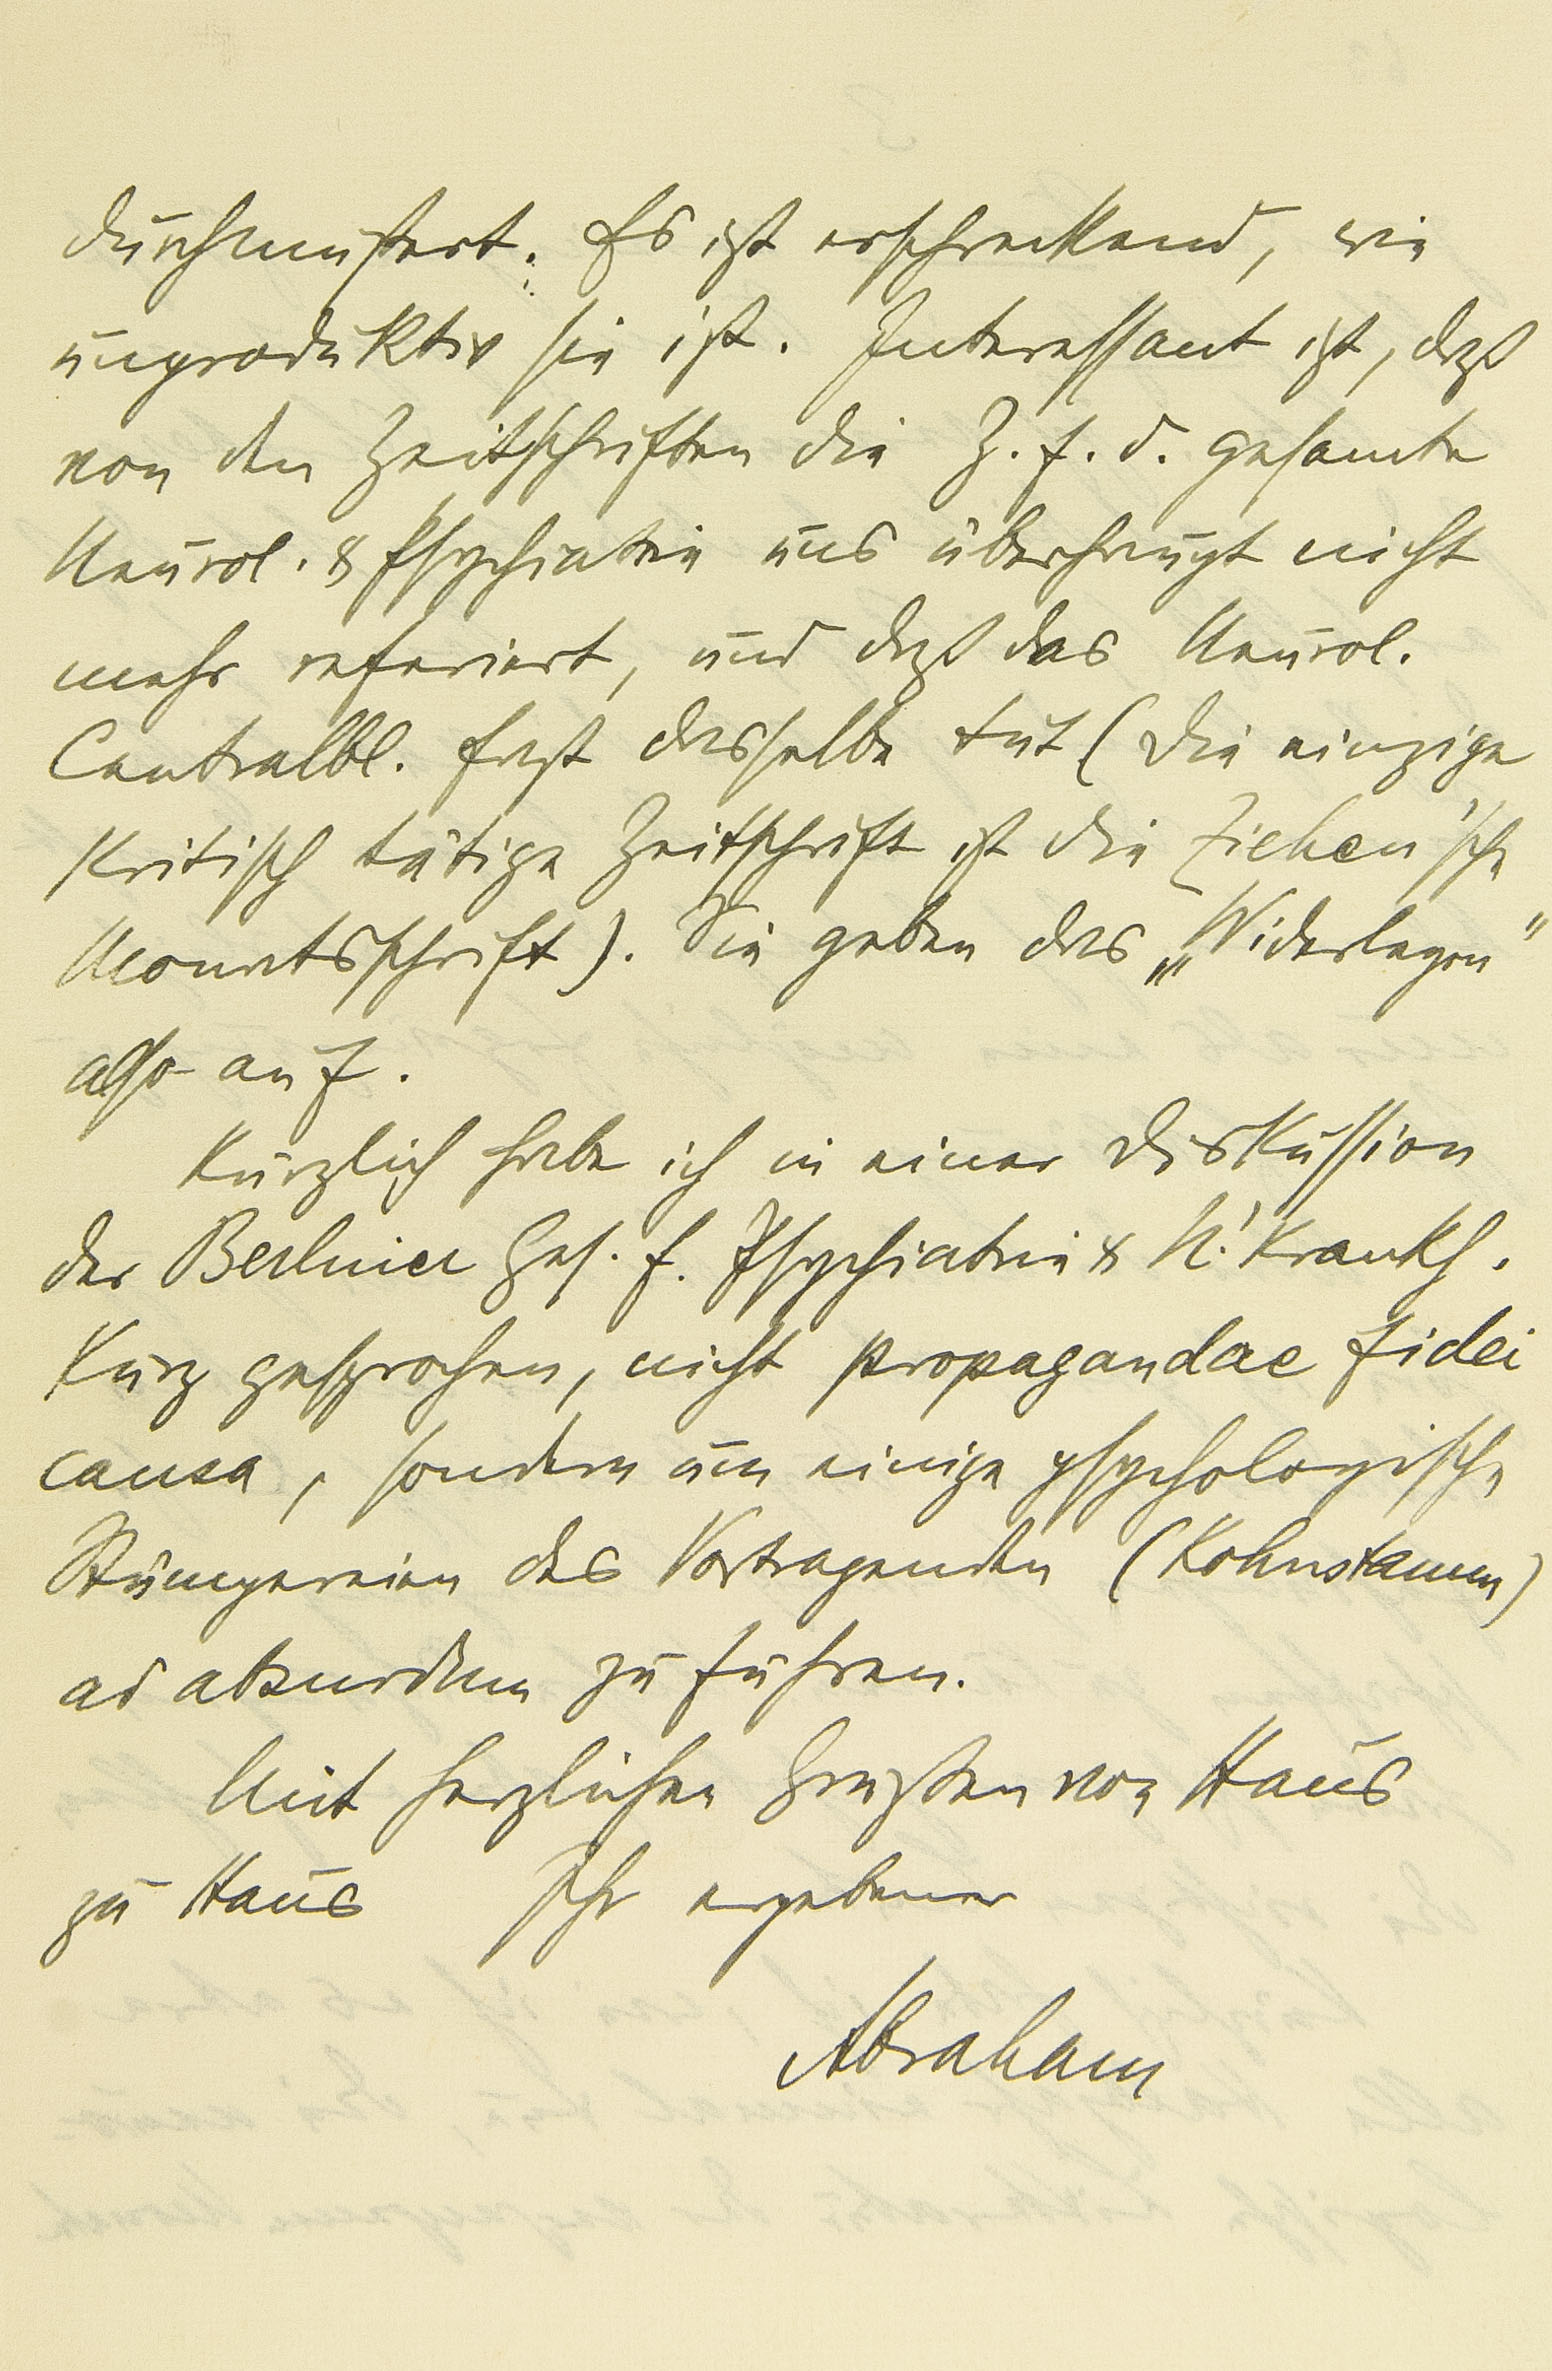 durchmustert. Es ist erschreckend, wie
unproduktiv sie ist. Interessant ist, daß
von den Zeitschriften die Z. f. d. gesamte
Neurol. & Psychiatrie uns überhaupt nicht
mehr referiert, und daß das Neurol.
Centralbl. fast dasselbe tut (die einzige
kritisch tätige Zeitschrift ist die Ziehen'sche
Monatsschrift). Sie geben das „Widerlegen“
also auf.
Kürzlich habe ich in einer Diskussion
der Berliner Ges. f. Psychiatrie & N.'Krankh.
kurz gesprochen, nicht propagandae fidei
causa, sondern um einige psychologische
Stümpereien des Vortragenden (Kohnstamm)
ad absurdum zu führen.
Mit herzlichen Grüßen von Haus
zu Haus Ihr ergebener
Abraham